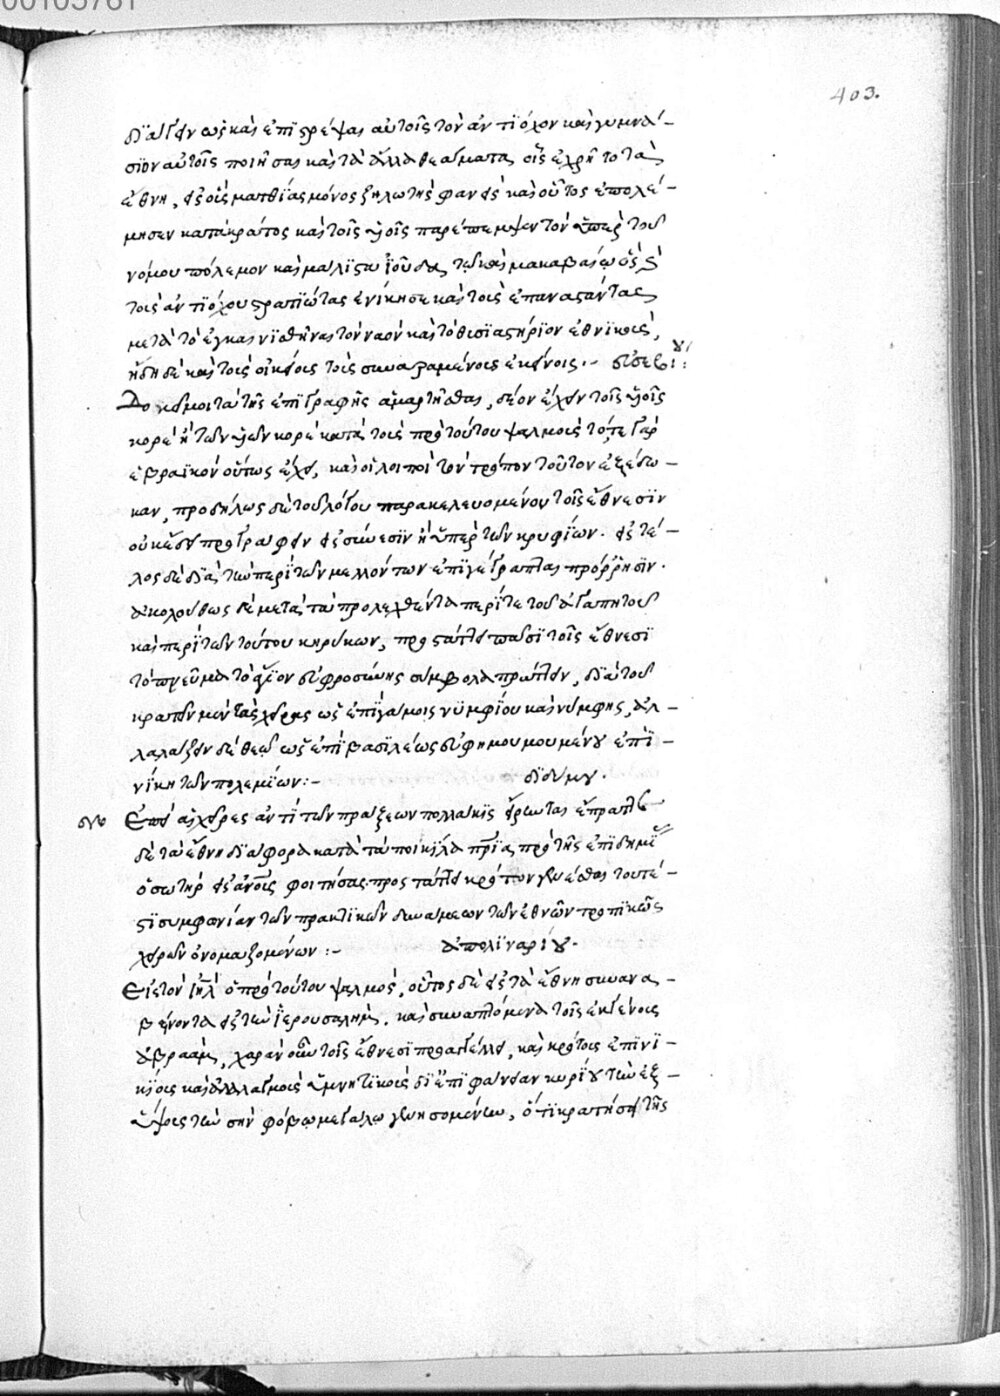 00105761
403.
διάγειν ὡς καὶ ἐπιτρέψαι αὐτοῖς τὸν ἀντίοχον καὶ γυμνά-
σιον αὐτοῖς ποιῆσαι καὶ τὰ ἄλλα θεάματα οἷς ἐχρῆτο τὰ
ἔθνη, εἰς οὓς ματθίας μόνος ζηλωτὴς φανεὶς καὶ οὗτος ἐπολέ-
μησεν κατακράτος καὶ τοῖς υἱοῖς παρέπεμψεν τὸν ὑπὲρ τοῦ
νόμου πόλεμον καὶ μάλιστα ἰούδα τῷ καὶ μακαβαίῳ ὃς
τοὺς ἀντιόχου στρατιώτας ἐνίκησε καὶ τοὺς ἐπαναστάντας
μετὰ τὸ ἐγκαινισθῆναι τὸν ναὸν καὶ τὸ θυσιαστήριον ἐθνικοὺς,
ἤδη δὲ καὶ τοὺς οἰκείους τοὺς συναραμένους ἐκείνοις.- εὐσεβίου:
Δοκεῖ μοι τὰ τῆς ἐπιγραφῆς ἁμαρτῆσθαι, δέον ἔχειν τοῖς υἱοῖς
κορὲ ἢ τῶν υἱῶν κορὲ κατὰ τοὺς πρὸ τούτου ψαλμοὺς τό, τε γὰρ
ἑβραϊκὸν οὕτως ἔχει, καὶ οἱ λοιποὶ τὸν τρόπον τοῦτον ἐξέδω-
καν, προδήλως δὲ τοῦ λόγου παρακελευομένου τοῖς ἔθνεσιν
οὐκ ἔδει προγράφειν εἰς σύνεσιν ἢ ὑπὲρ τῶν κρυφίων. εἰς τέ-
λος δὲ διὰ τὴν περὶ τῶν μελλόντων ἐπιγέγραπται πρόρρησιν.
ἀκολούθως δὲ μετὰ τὰ προλεχθέντα περί τε τοῦ ἀγαπητοῦ
καὶ περὶ τῶν τούτου κηρύκων, προστάττει πᾶσι τοῖς ἔθνεσι
τὸ πνεῦμα τὸ θεῖον εὐφροσύνης σύμβολα πράττειν, διὰ τοῦ
κροτεῖν μὲν τὰς χεῖρας ὡς ἐπὶ γάμοις νυμφίου καὶ νύμφης, ἀλ-
λαλάζειν δὲ θεῷ ὡς ἐπὶ βασιλέως εὐφημουμένου ἐπὶ
νίκῃ τῶν πολεμίων:- διδύμου.
Ἐπεὶ αἱ χεῖρες ἀντὶ τῶν πράξεων πολλάκις εἴρωνται ἔπραττε
δὲ τὰ ἔθνη διάφορα κατὰ τὰ ποικίλα πρὸ τῆς ἐπιδημίας
ὁ σωτὴρ εἰς ἀνοὺς φοιτήσας προστάττει κρότον γενέσθαι τουτέ-
στι συμφωνίαν τῶν πρακτικῶν δυνάμεων τῶν ἐθνῶν τροπικῶς
χειρῶν ὀνομαζομένων:- ἀπολιναρίου.
Εἰς τὸν ιηλ ὁ πρὸ τούτου ψαλμός, οὗτος δὲ εἰς τὰ ἔθνη συνανα-
βαίνοντα εἰς τὴν ἱερουσαλήμ, καὶ συναπτόμενα τοῖς ἐκ γένους
ἀβραάμ, χαρὰν οὖν τοῖς ἔθνεσι προαγγέλλει, καὶ κρότους ἐπινι-
κίους καὶ ἀλλαλαγμοὺς ὑμνητικοὺς δι' ἐπιφάνειαν κυρίου τὴν ἐξ
ὕψους τὴν σὺν φόβῳ μεγάλῳ γενησομένην, ὅτι κρατήσει τῆς